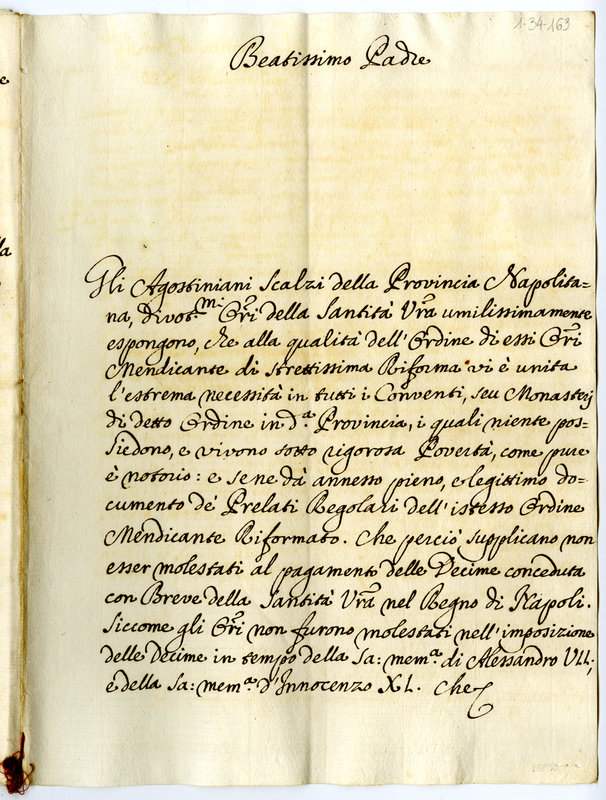 1-34-163
Beatissimo Padre
Gli Agostiniani Scalzi della Provincia Napolita=
na, divot.mi Orñi della Santità Vrã umilissimamente
espongono, che alla qualità dell'Ordine di essi Orñi
Mendicante di strettissima Riforma vi è unita
l'estrema necessità in tutti i Conventi, seu Monasterj
di detto Ordine in d.a Provincia, i quali niente pos=
siedono, e vivono sotto rigorosa Povertà, come pure
è notorio: e se ne dà annesso pieno, e legittimo do=
cumento de' Prelati Regolari dell'istesso Ordine
Mendicante Riformato. Che perciò supplicano non
esser molestati al pagamento delle Decime conceduta
con Breve della Santità Vrã nel Regno di Napoli.
Siccome gli Orñi non furono molestati nell'imposizione
delle Decime in tempo della Sa: mem.a di Alessandro VII;
e della Sa: mem.a d'Innocenzo XI. Che